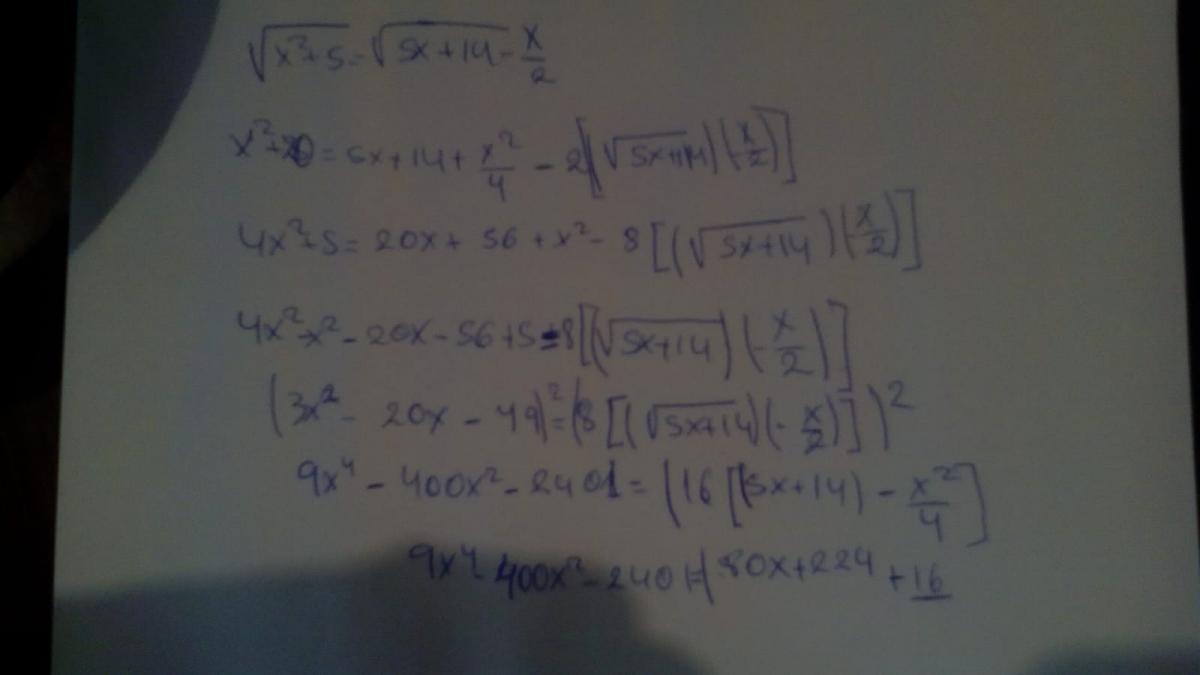 √x²+5 = √5x+14 - x/2
x²+ = 5x+14+ x²/4 - 2[(√5x+14)(x/2)]
4x²+5 = 20x + 56 + x² - 8[(√5x+14)(x/2)]
4x²-x² - 20x - 56+5 = 8[(√5x+14)(-x/2)]
(3x² - 20x - 49)² = (8[(√5x+14)(-x/2)])²
9x⁴ - 400x² - 2401 = (16[(5x+14) - x²/4]
9x⁴ - 400x² - 2401 = 80x+224 + 16